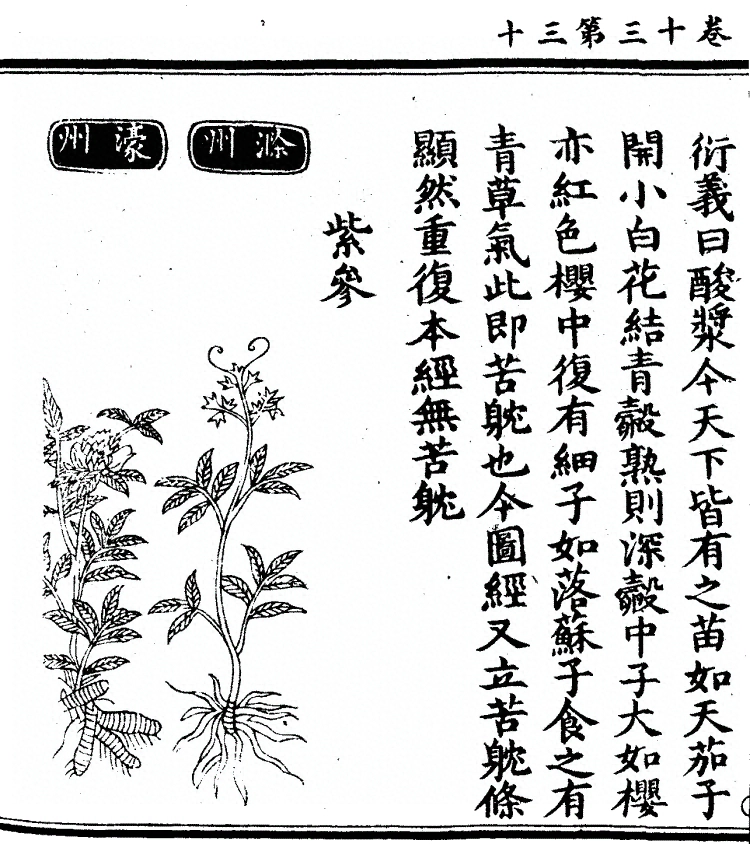 卷十三第三十
衍義曰酸漿今天下皆有之苗如天茄子
開小白花結青殼熟則深殼中子大如櫻
亦紅色櫻中復有細子如落蘇子食之有
青草氣此即苦躭也今圖經又立苦躭條
顯然重復本經無苦躭
紫參
滁州
濠州